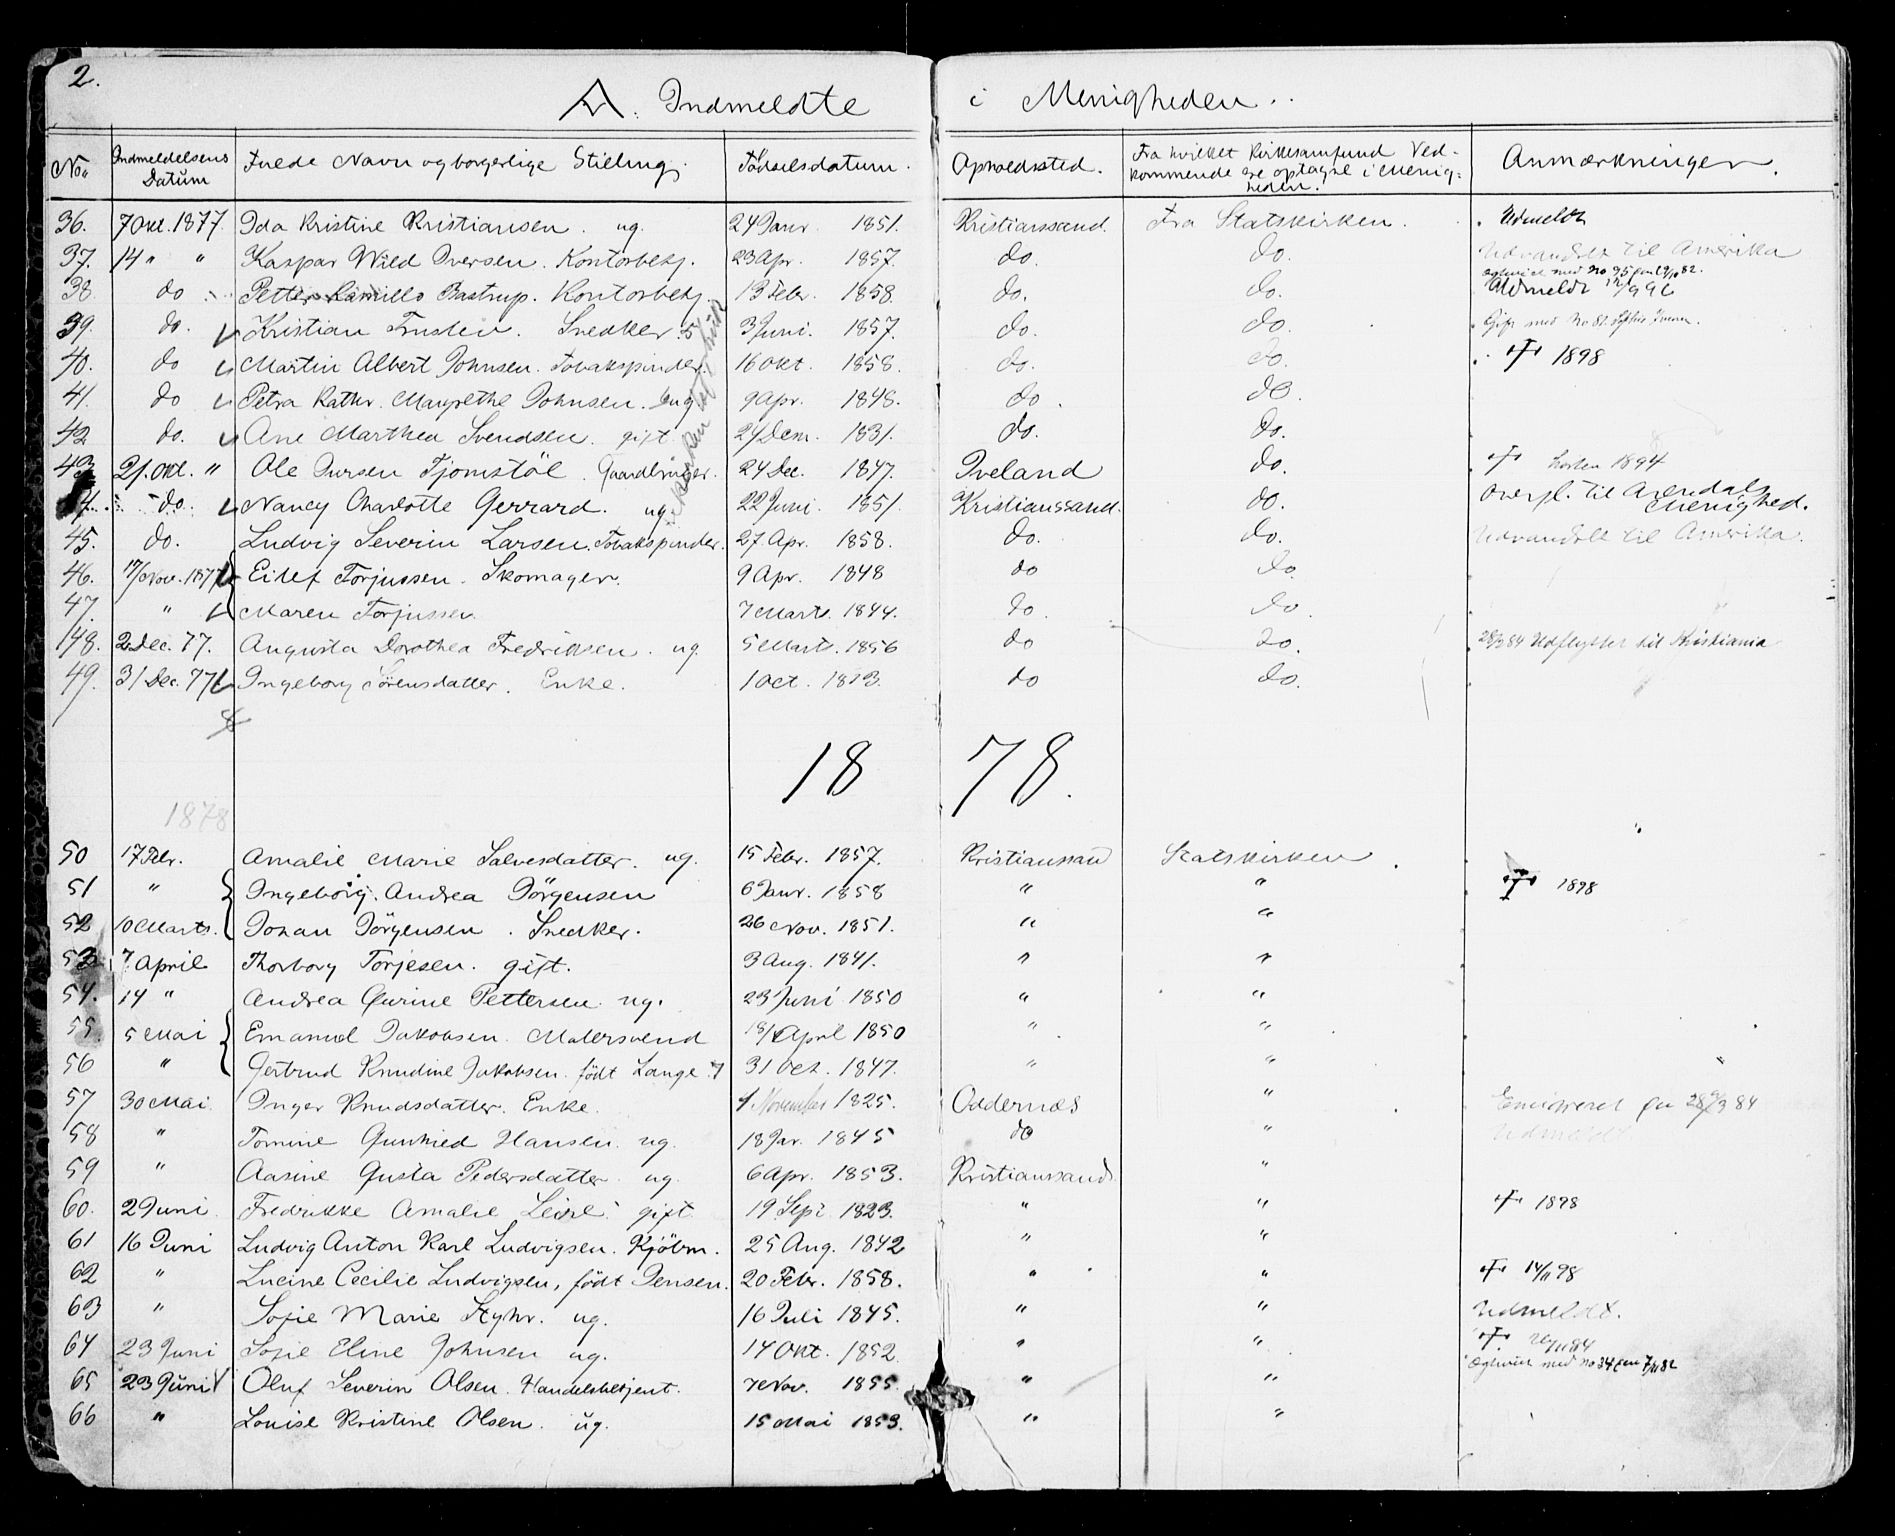 2.
A. Indmeldte i Menigheden.
No. Indmeldelsens Datum Fulde Navn og borgerlige Stilling. Födselsdatum. Opholdssted. Fra hvilket Kirkesamfund Ved-kommende ere optagne i Menig-heden. Anmærkninger.
36. 7 Okt. 1877 Ida Kristine Kristiansen. ug. 24 Janr 1851. Kristianssand. Fra Statskirken. Udmeldt
37. 14 " " Kaspar Wild Iversen. Kontorbetj. 23 Apr. 1857. do. do. Udvandret til Amerika
38 do Petter Kamillo Bastrup. Kontorbetj. 13 Febr. 1858. do. do. Udmeldt
39. do. Kristian Knsten. Snedker. 3 Juni. 1857. do. do. Gift med No 81.
40. do Martin Albert Johnsen. Tobakspinder. 16 Okt. 1858. do. do. † 1898
41. do Petra Kathr. Margrethe Johnsen. ug 9 Apr. 1848. do. do.
42 do. Ane Marthea Svendsen. gift 24 Dem. 1831. do. do.
43 21. Okt. " Ole Gursen Fjomstöl. Gaardbruger. 24 Dec. 1847. Iveland do. † 1894
44. do. Nancy Charlotte Gerrard. ug 22 Juni. 1851. Kristianssand. do. Overfl. til Arendals Menighed.
45. do. Ludvig Severin Larsen. Tobakspinder. 27 Apr. 1858. do. do. Udvandret til Amerika.
46. 17/Nov. 1877 Eilef Torjussen. Skomager. 9 Apr. 1848 do do
47. " Maren Torjussen 7 Marts. 1844. do. do
48. 2 Dec. 77. Augusta Dorothea Fredriksen. ug. 5 Marts. 1856 do do. 28/3 84 Udflyttet til Kristiania
49. 31 Dec. 77 Ingeborg Sörensdatter. Enke. 1 Oct. 1813. do do.
1878.
1878
50 17 Febr. Amalie Marie Salvesdatter. ug. 15 Febr. 1857. Kristianssand Statskirken.
51 " Ingeborg Andrea Jörgensen 6 Janr. 1858 " " † 1898
52 10 Marts. Johan Jörgensen. Snedker. 26 Nov. 1851. " "
53 7. April Thorborg Torjesen. gift. 3 Aug. 1841. " "
54. 14 " Andrea Gurine Pettersen. ug. 23 Juni 1850 " "
55. 5 Mai Emanuel Jakobsen. Malersvend 18/April 1850 " "
56 " Gertrud Knudine Jakobsen. född Lange 31 Oct. 1847. " "
57 30 Mai Inger Knudsdatter. Enke. 1. November 1825. Oddernæs "
58 " Tomine Gunhild Hansen. ug. 18 Jar. 1845 do " Udmeldt
59 " Aasine Gusta Pedersdatter ug. 6 Apr. 1853. Kristianssand. "
60. 2 Juni Fredrikke Amalie gift 19 Sept 1823. " " † 1898
61 16 Juni Ludvig Anton Karl Ludvigsen. Kjöbm. 25 Aug. 1842 " "
62 " Lucine Cecilie Ludvigsen, född Jensen. 20 Febr. 1858. " " † 14/11 98
63 " Sofie Marie Styhr. ug. 16 Juli 1845. " " Udmeldt.
64 23 Juni Sofie Eline Johnsen ug. 14 Okt. 1852. " " †
65 23 Juni Oluf Severin Olsen. Handelsbetjent. 7 Nov. 1855. " " Ægteviet med No 34 den 7/11 82
66 " Louise Kristine Olsen. ug. 15 Mai 1853. " "